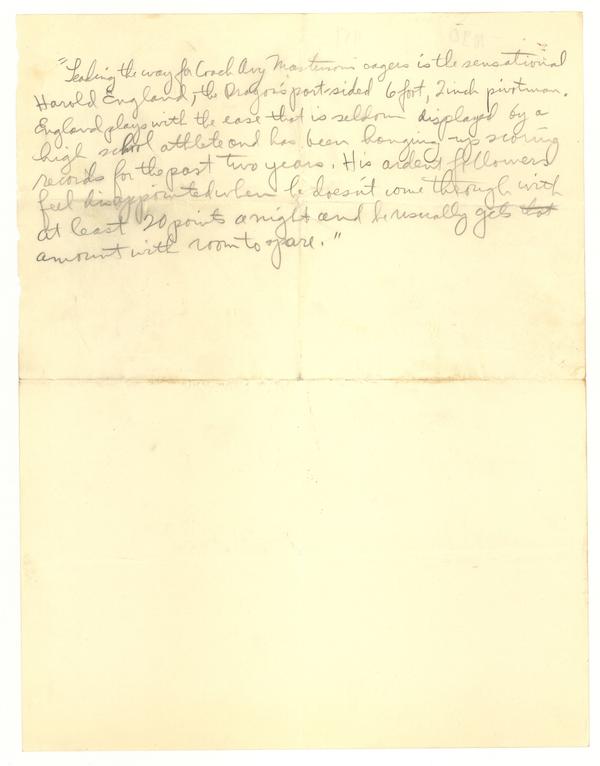 "Leading the way for Coach Avy Masterson's cagers is the sensational
Harold England, the Dragons' port-sided 6 foot, 2 inch pivotman.
England plays with the ease that is seldom displayed by a
high school athlete and has been hanging up scoring
records for the past two years. His ardent followers
feel disappointed when he doesn't come through with
at least 20 points a night and he usually gets that
amount with room to spare."